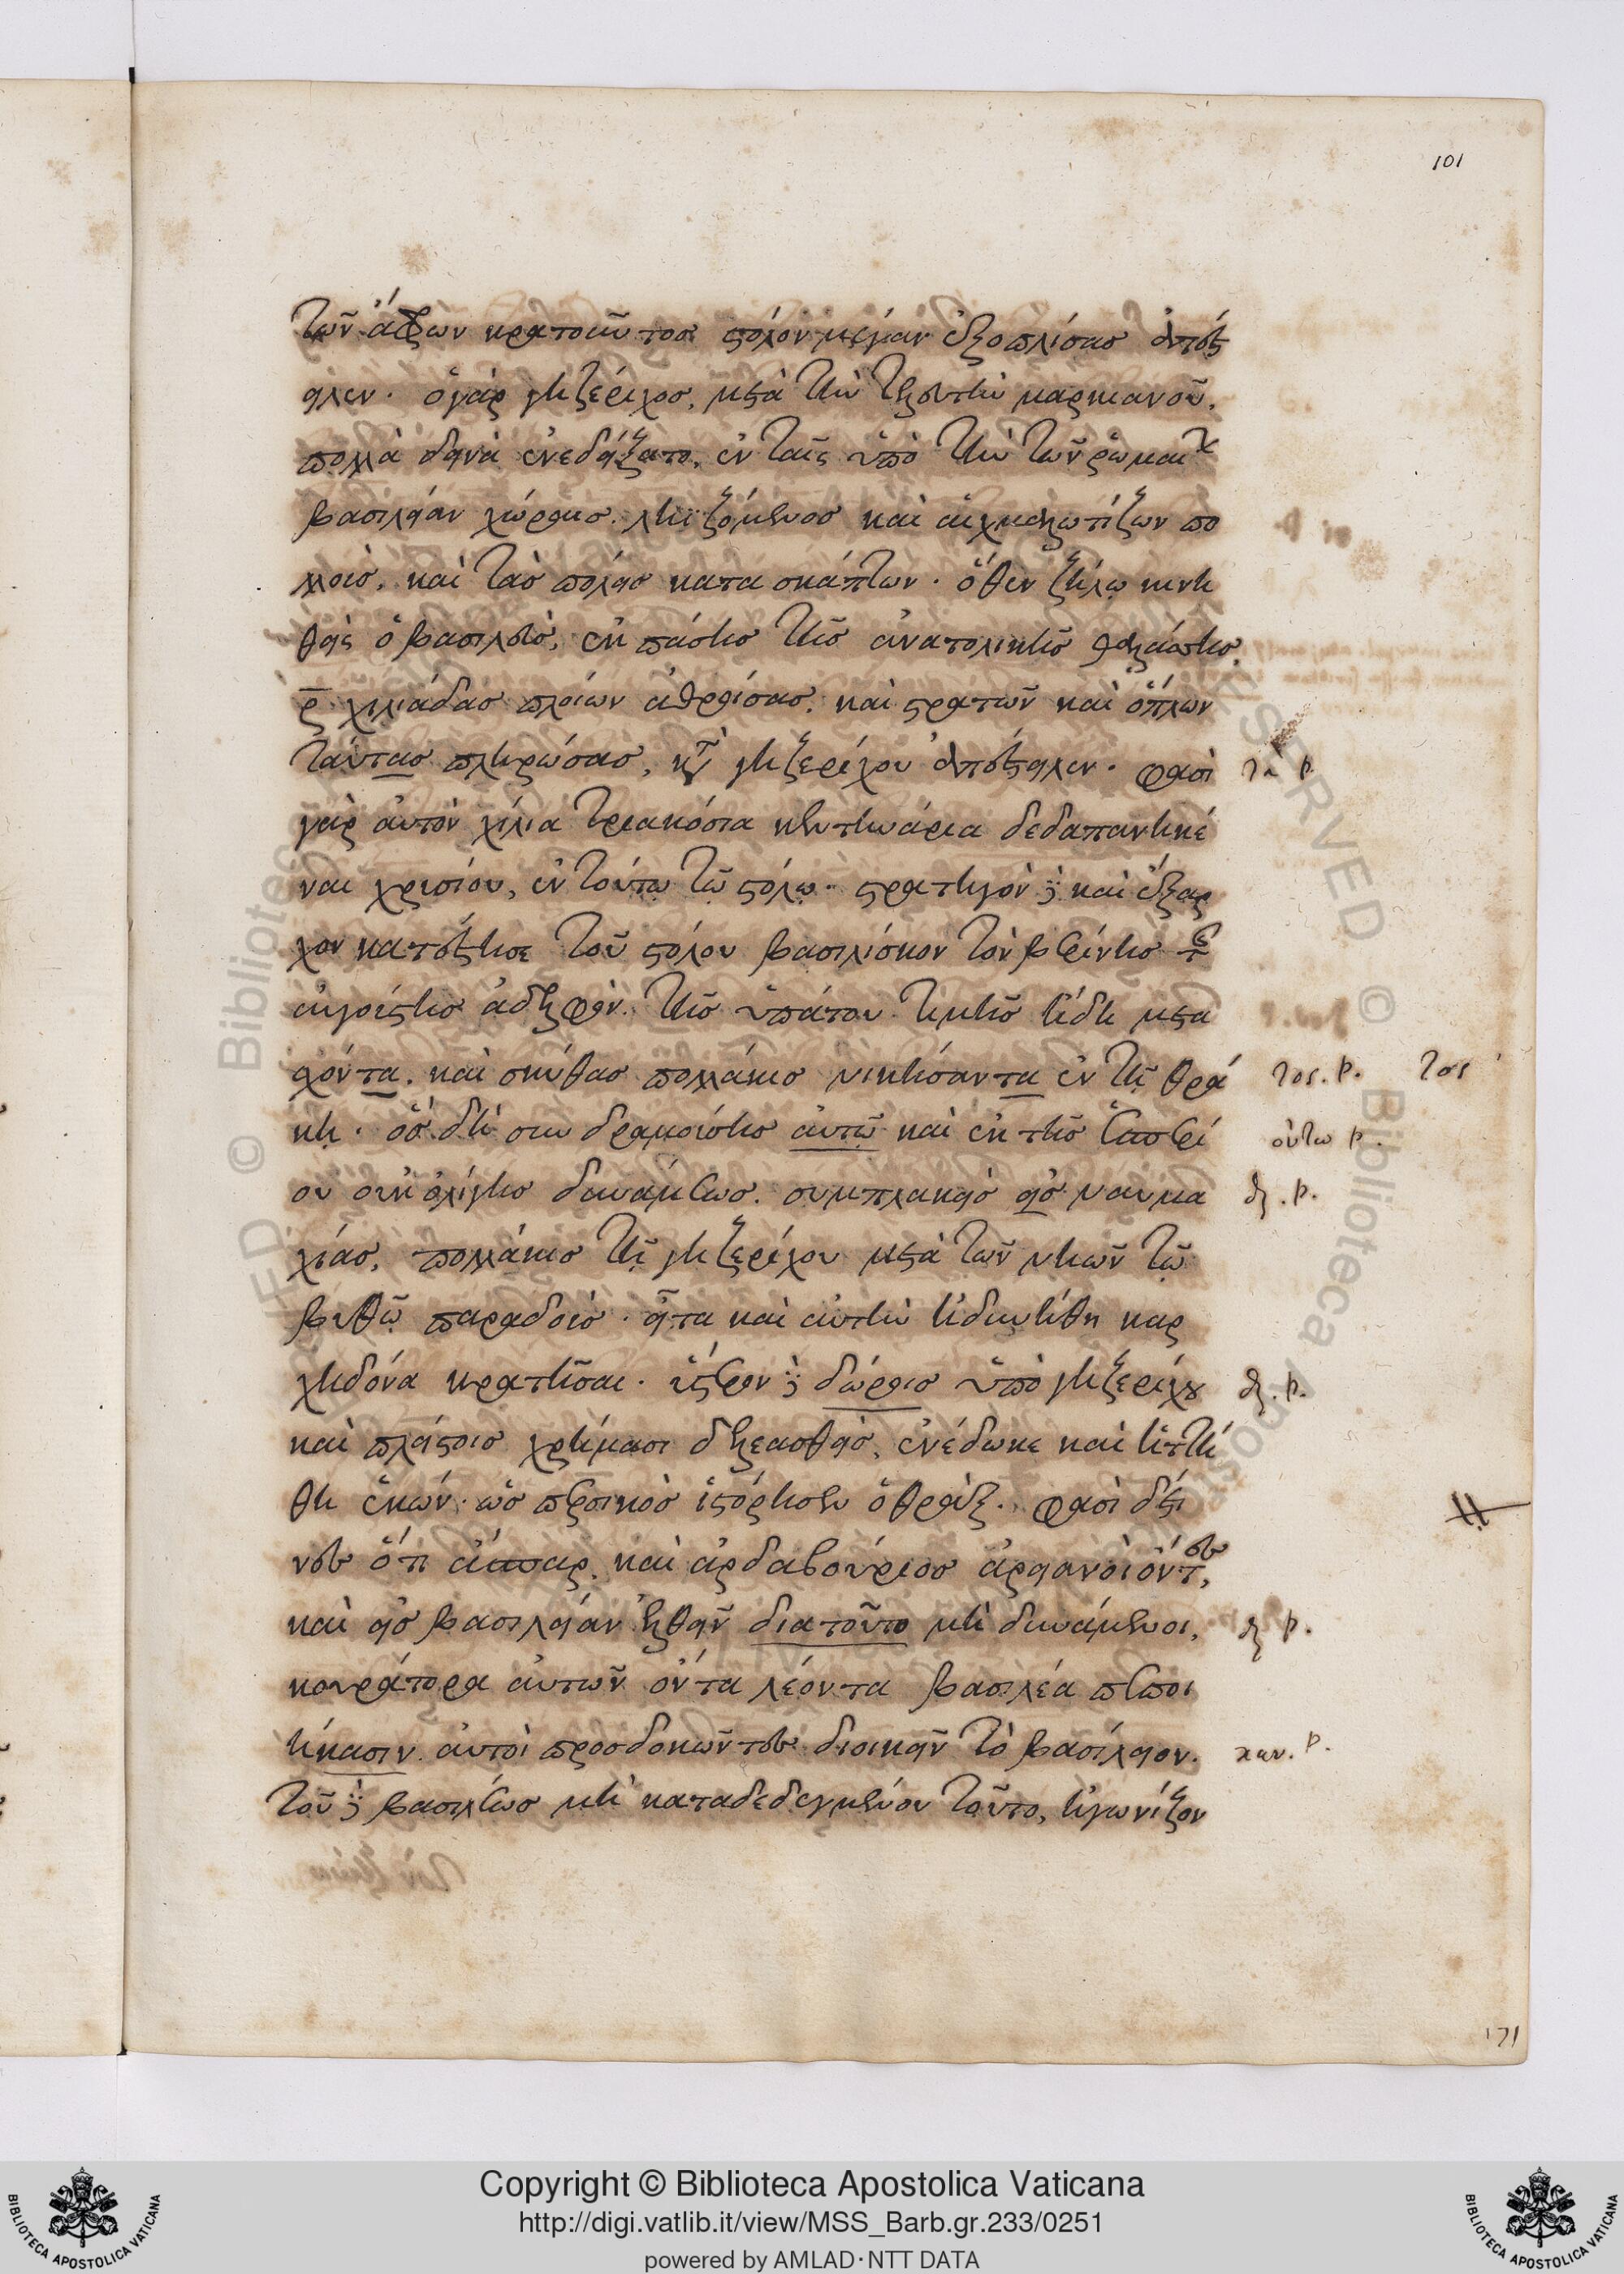 101
τῶν ἄφρων κρατοῦντος στόλον μέγαν ἐξοπλίσας ἀπέστ
ειλεν. ὁ γὰρ γηζέριχος, μετὰ τὴν τελευτὴν μαρκιανοῦ,
πολλὰ δεινὰ ἐνεδείξατο, ἐν ταῖς ὑπὸ τὴν τῶν ῥωμαίων
βασιλείαν χώραις. ληϊζόμενος καὶ αἰχμαλωτίζων πο
λλοὺς, καὶ τὰς πόλεις κατασκάπτων. ὅθεν ζήλῳ κινη
θεὶς ὁ βασιλεὺς, ἐκ πάσης τῆς ἀνατολικῆς θαλάσσης,
ρ χιλιάδας πλοίων ἀθροίσας, καὶ στρατῶν καὶ ὅπλων
ταύτας πληρώσας, κατὰ γηζερίχου ἀπέστειλεν. φασὶ
τα p.
γὰρ αὐτὸν χίλια τριακόσια κεντηνάρια δεδαπανηκέ
ναι χρυσίου, ἐν τούτῳ τῷ στόλῳ. στρατηγὸν δὲ καὶ ἔξαρ
χον κατέστησε τοῦ στόλου βασιλίσκον τὸν βερίνης τῆς
αὐγούστης ἀδελφὸν. τῆς ὑπάτου τιμῆς ἤδη μετα
σχόντα. καὶ σκύθας πολλάκις νικήσαντα ἐν τῇ θρά
τος. p. τος
κῃ. ὃς δὴ συνδραμούσης αὐτῷ καὶ ἐκ τῆς ἑσπερί
οὕτω p.
ου οὐκ ὀλίγης δυνάμεως. συμπλακεὶς εἰς ναυμα
χίας, πολλάκις τῇ γηζερίχου μετὰ τῶν νηῶν τῷ
βυθῷ παραδοὺς. εἶτα καὶ αὐτὴν ἠδυνήθη καρ
χηδόνα κρατῆσαι. ὕστερον δὲ δώροις ὑπὸ γηζερίχου
καὶ πλείστοις χρήμασι δελεασθεὶς, ἐνέδωκε καὶ ἡττή
θη ἑκών. ὡς περσικὸς ἱστόρησεν ὁ θρᾷξ. φασὶ δέ τι
νες ὅτι ἄσπαρ, καὶ ἀρδαβούριος ἀρειανοὶ ὄντες,
καὶ εἰς βασιλείαν ἐλθεῖν διατοῦτο μὴ δυνάμενοι,
κουράτορα αὐτῶν ὄντα λέοντα βασιλέα πεποι
ήκασιν. αὐτοὶ προσδοκῶντες διοικεῖν τὸ βασίλειον.
καν. p.
τοῦ δὲ βασιλέως μὴ καταδεδεγμένου τοῦτο, ἠγωνίζον
171
Copyright © Biblioteca Apostolica Vaticana
http://digi.vatlib.it/view/MSS_Barb.gr.233/0251
powered by AMLAD·NTT DATA
BIBLIOTECA APOSTOLICA VATICANA
BIBLIOTECA APOSTOLICA VATICANA